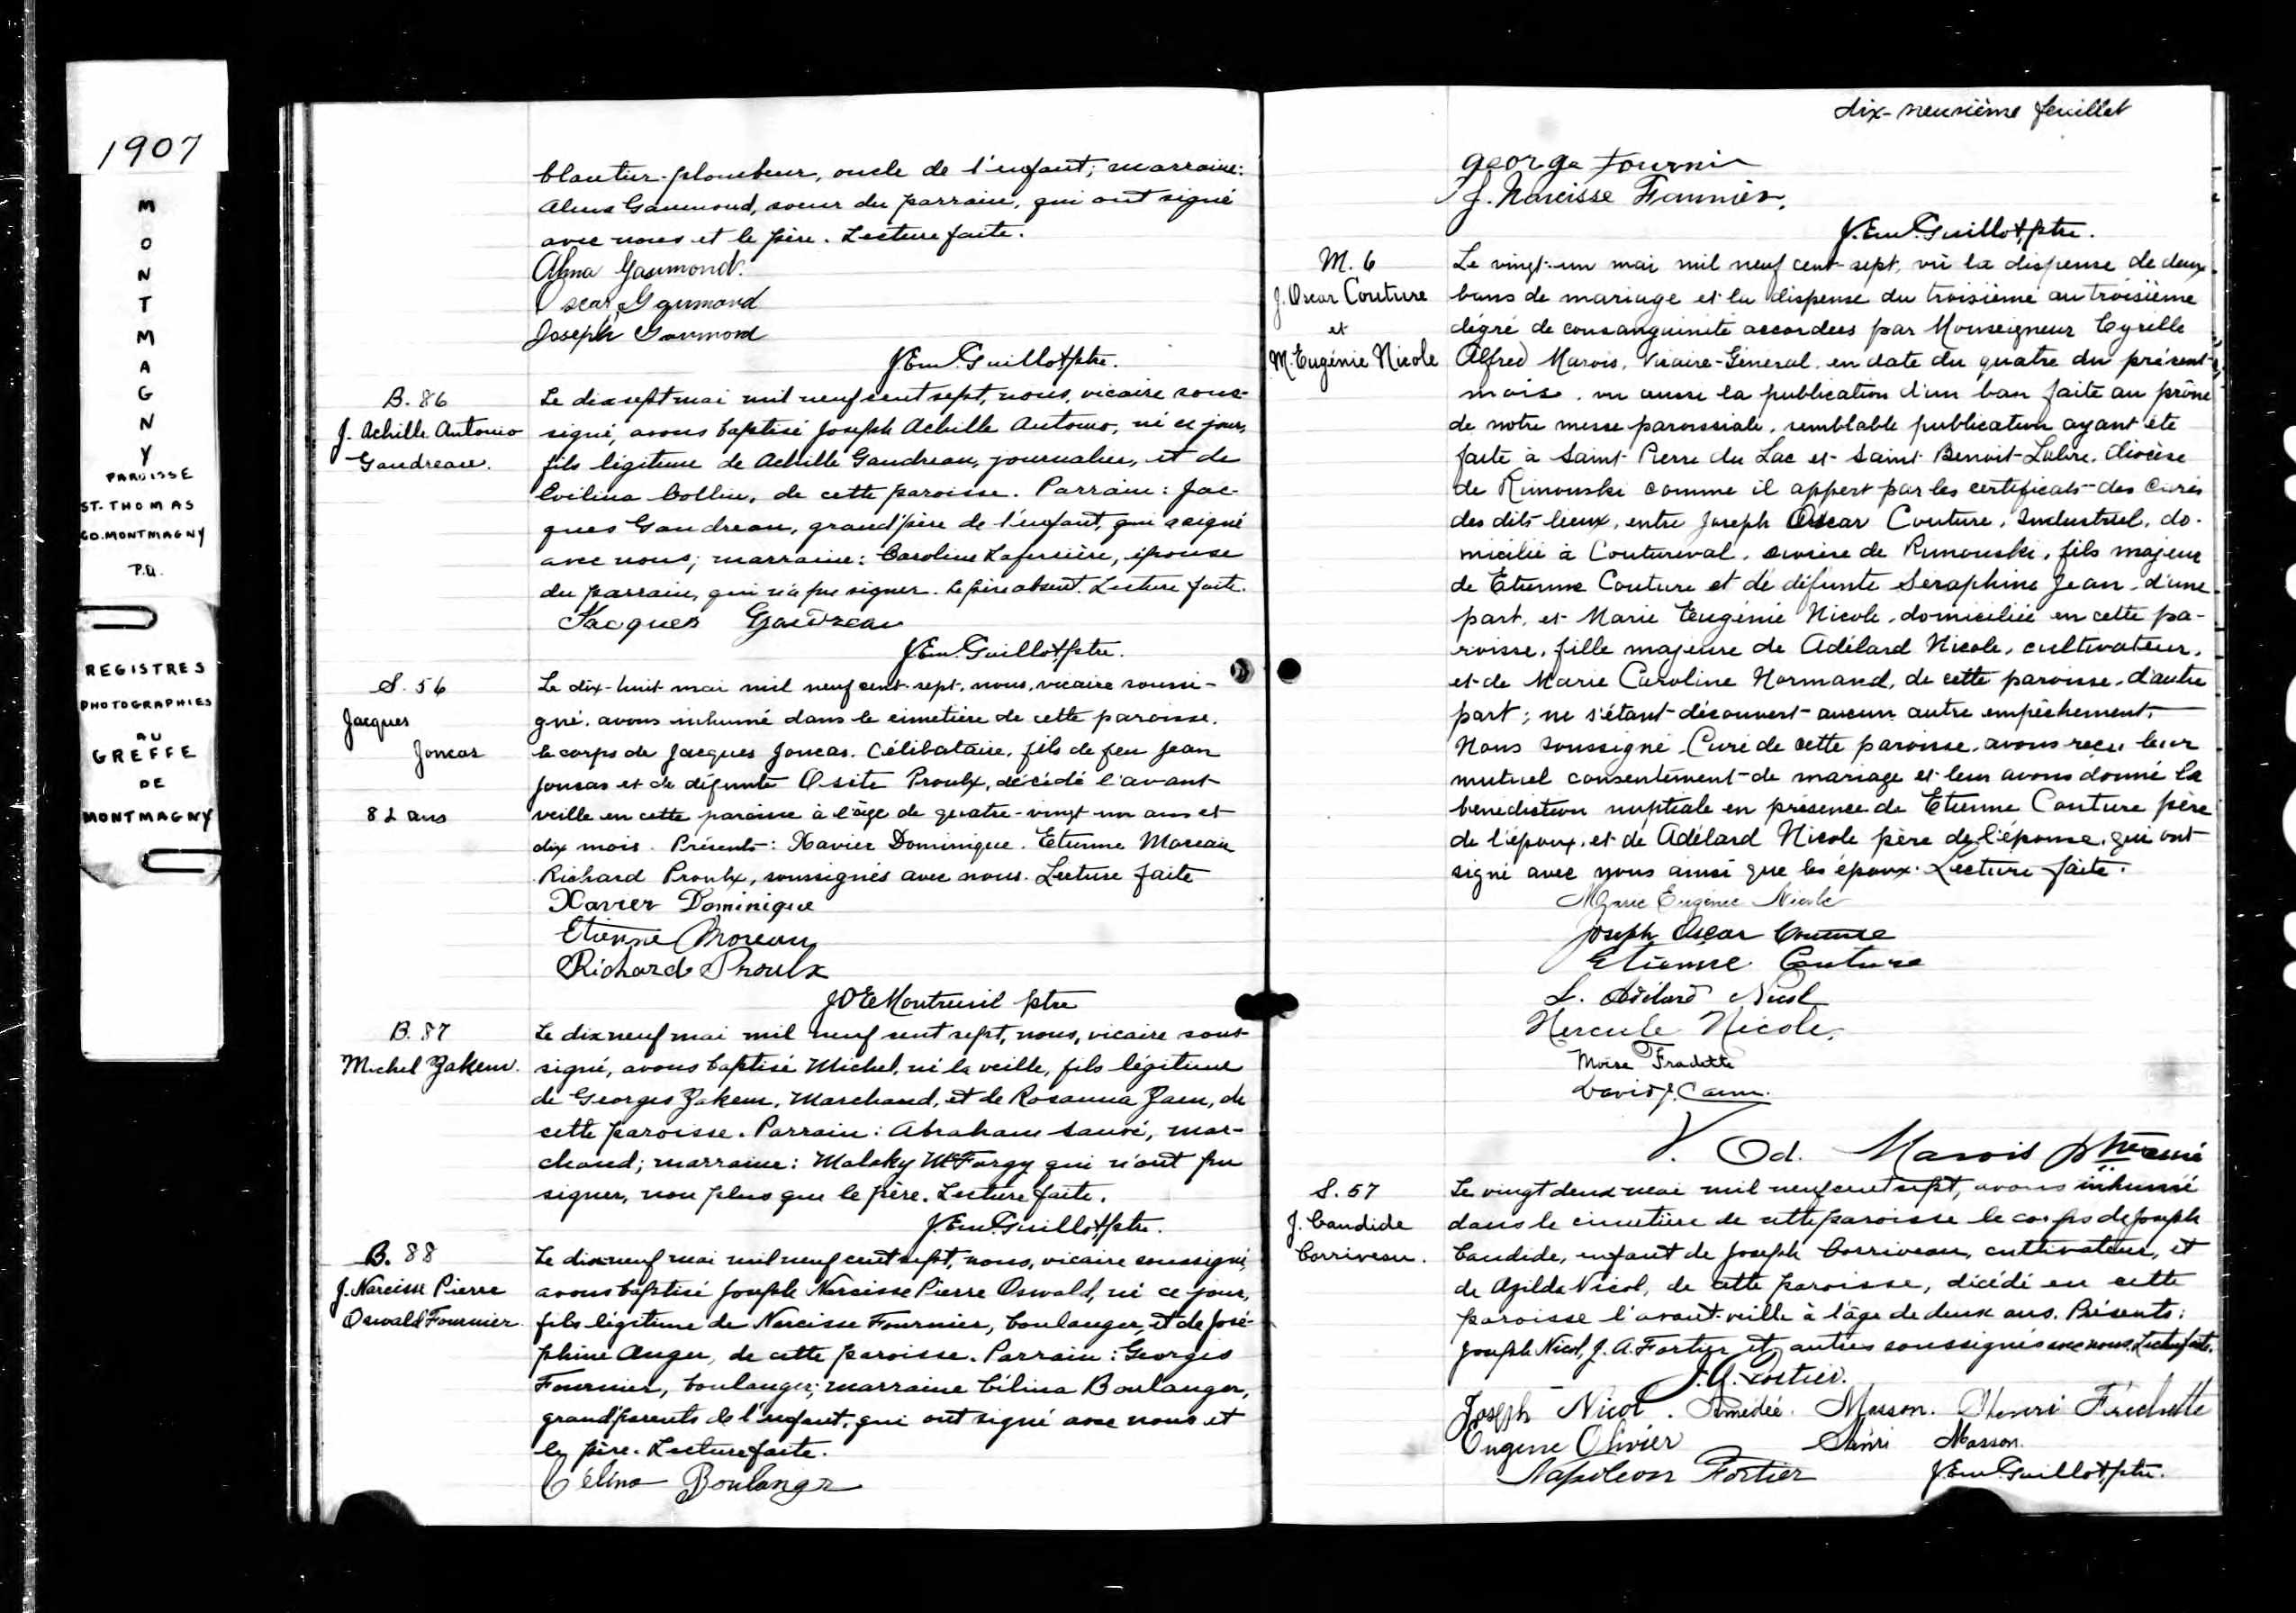 1907
MONTMAGNY
PAROISSE
ST. THOMAS
CO. MONTMAGNY
P.Q.
REGISTRES
PHOTOGRAPHIES
AU
GREFFE
DE
MONTMAGNY
blantier-plombeur, oncle de l'enfant; marraine:
Alma Gaumond, soeur du parrain, qui ont signé
avec nous et le père. Lecture faite.
Alma Gaumond.
Oscar Gaumond
Joseph Gaumond
J. Em. Guillot, ptre.
B. 86
J. Achille Antonio
Gaudreau.
Le dix sept mai mil neuf cent sept, nous, vicaire sous-
signé, avons baptisé Joseph Achille Antonio, né ce jour,
fils légitime de Achille Gaudreau, journalier, et de
Evilina Collin, de cette paroisse. Parrain: Jac-
ques Gaudreau, grand'père de l'enfant, qui a signé
avec nous; marraine: Caroline Laferrière, épouse
du parrain, qui n'a pu signer. Le père absent. Lecture faite.
Jacques Gaudreau
J. Em. Guillot, ptre.
S. 56
Jacques
Joncas
82 ans
Le dix-huit mai mil neuf cent-sept, nous, vicaire soussi-
gné, avons inhumé dans le cimetière de cette paroisse,
le corps de Jacques Joncas, Célibataire, fils de feu Jean
Joncas et de défunte Osite Proulx, décédé l'avant
veille en cette paroisse à l'âge de quatre-vingt un ans et
dix mois. Présents: Xavier Dominique, Etienne Moreau
Richard Proulx, soussignés avec nous. Lecture faite
Xavier Dominique
Etienne Moreau
Richard Proulx
J O E Montreuil ptre
B. 87
Michel Zakem.
Le dix neuf mai mil neuf cent sept, nous, vicaire sous-
signé, avons baptisé Michel, né la veille, fils légitime
de Georges Zakem, Marchand, et de Rosanna Zaem, de
cette paroisse. Parrain: Abraham Sauvé, mar-
chand; marraine: Malaky McFargy qui n'ont pu
signer, non plus que le père. Lecture faite.
J. Em. Guillot, ptre.
B. 88
J. Narcisse Pierre
Oswald Fournier.
Le dix neuf mai mil neuf cent sept, nous, vicaire soussigné,
avons baptisé Joseph Narcisse Pierre Oswald, né ce jour,
fils légitime de Narcisse Fournier, boulanger, et de José-
phine Anger, de cette paroisse. Parrain: Georges
Fournier, boulanger; marraine Célina Boulanger,
grand'parents de l'enfant, qui ont signé avec nous et
le père. Lecture faite.
Célina Boulanger
dix-neuvième feuillet
George Fournier
J. Narcisse Fournier.
J. Em. Guillot, ptre.
M. 6
J. Oscar Couture
et
M. Eugénie Nicole
Le vingt-un mai mil neuf cent-sept, vû la dispense de deux
bans de mariage et la dispense du troisième au troisième
dégré de consanguinité accordées par Monseigneur Cyrille
Alfred Marois, Vicaire-Général en date du quatre du présent
mois, vu aussi la publication d'un ban faite au prône
de notre messe paroissiale, semblable publication ayant été
faite à Saint-Pierre du Lac et Saint Benoit-Labre, diocèse
de Rimouski comme il appert par les certificats des Curés
des dits lieux, entre Joseph Oscar Couture, Industriel, do-
micilié à Coutureval, diocèse de Rimouski, fils majeur
de Etienne Couture et de défunte Séraphine Jean, d'une
part, et Marie Eugénie Nicole, domiciliée en cette pa-
roisse, fille majeure de Adélard Nicole, cultivateur,
et de Marie Caroline Normand, de cette paroisse, d'autre
part; ne s'étant découvert aucun autre empêchement,
Nous soussigné, Curé de cette paroisse, avons reçu leur
mutuel consentement de mariage et leur avons donné la
benediction nuptiale en présence de Etienne Couture père
de l'époux, et de Adélard Nicole père de l'épouse, qui ont
signé avec nous ainsi que les époux. Lecture faite.
Marie Eugénie Nicole
Joseph Oscar Couture
Etienne Couture
L. Adélard Nicol
Hercule Nicole.
Moïse Fradette
David J. Caron.
V. Od. Marois ptre curé
S. 57
J. Candide
Corriveau.
Le vingt deux mai mil neuf cent sept, avons inhumé
dans le cimetière de cette paroisse le corps de Joseph
Candide, enfant de Joseph Corriveau, cultivateur, et
de Azilda Nicol, de cette paroisse, décédé en cette
paroisse l'avant-veille à l'âge de deux ans. Présents:
Joseph Nicol, J. A. Fortier et autres soussignés avec nous. Lecture faite.
J. A. Fortier.
Joseph Nicol. Amédée Masson. Henri Fréchette
Eugene Olivier Henri Masson.
Napoléon Fortier J. Em. Guillot, ptre.